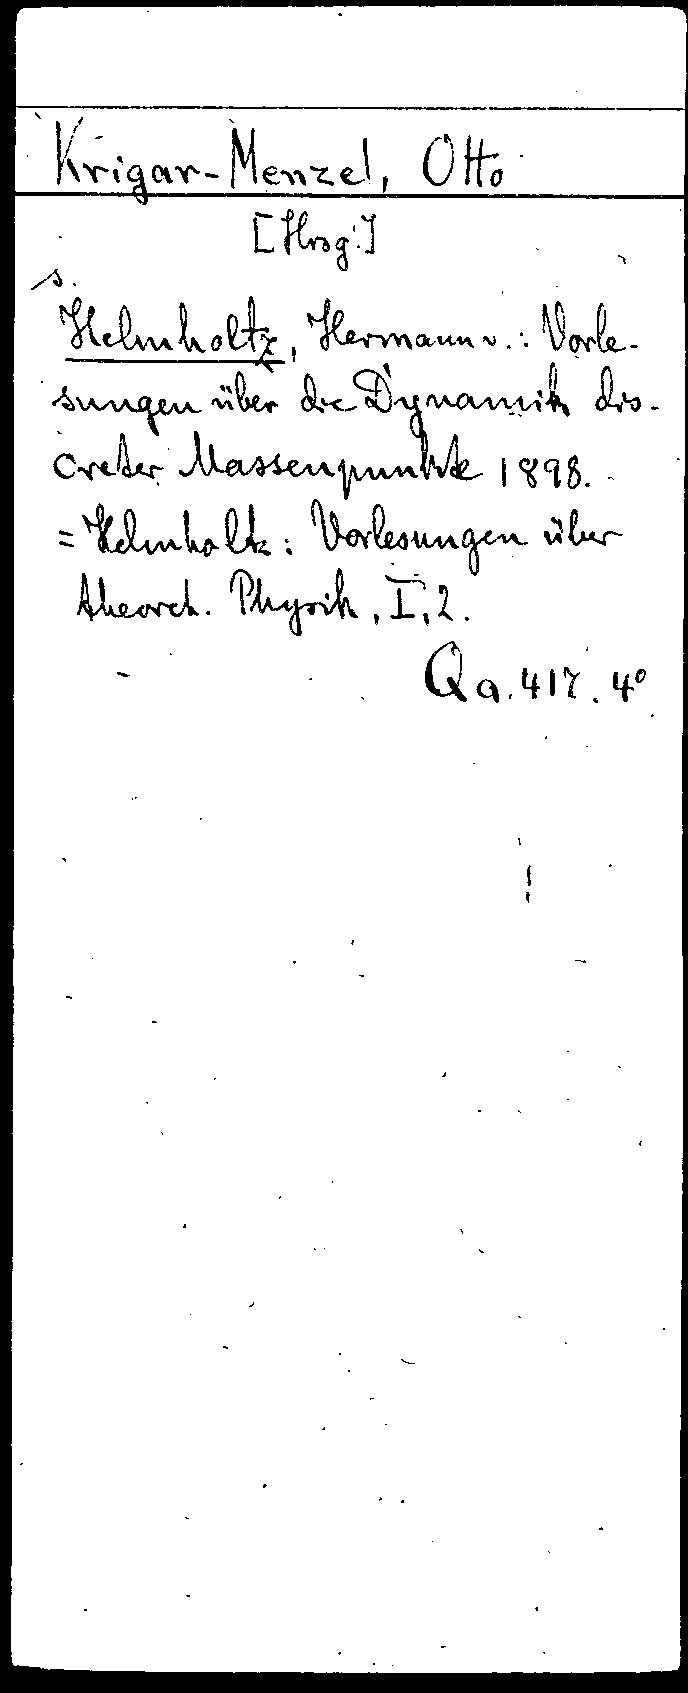 Krigar-Menzel, Otto
[Hrsg.]
s.
Helmholtz, Hermann v.: Vorle-
sungen über die Dynamik dis-
creter Massenpunkte 1898.
= Helmholtz: Vorlesungen über
theoret. Physik, I, 2.
Qa. 417. 4°
!